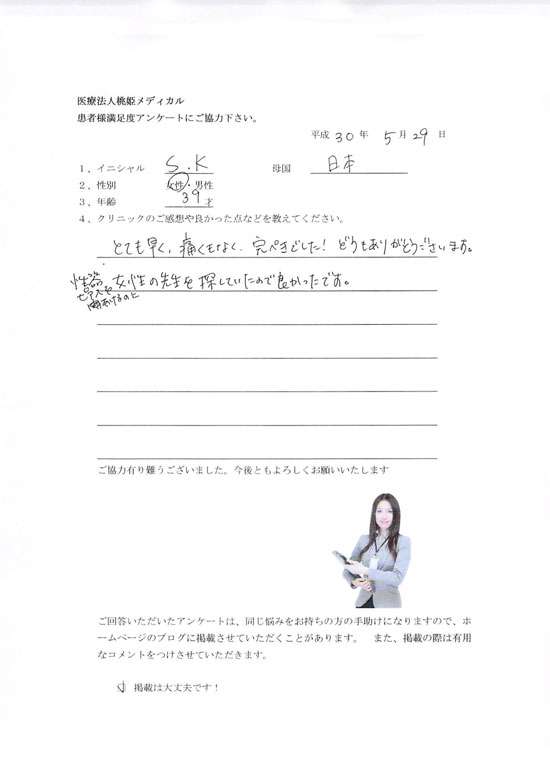 医療法人桃姫メディカル
患者様満足度アンケートにご協力下さい。
平成 30 年 5 月 29 日
1、イニシャル S.K 母国 日本
2、性別 女性・男性
3、年齢 39 才
4、クリニックのご感想や良かった点などを教えてください。
とても早く、痛くもなく、完ぺきでした! どうもありがとうございます。
性器ピアスを開あけるのに
女性の先生を探していたので良かったです。
ご協力有り難うございました。今後ともよろしくお願いいたします
ご回答いただいたアンケートは、同じ悩みをお持ちの方の手助けになりますので、ホ
ームページのブログに掲載させていただくことがあります。 また、掲載の際は有用
なコメントをつけさせていただきます。
掲載は大丈夫です!